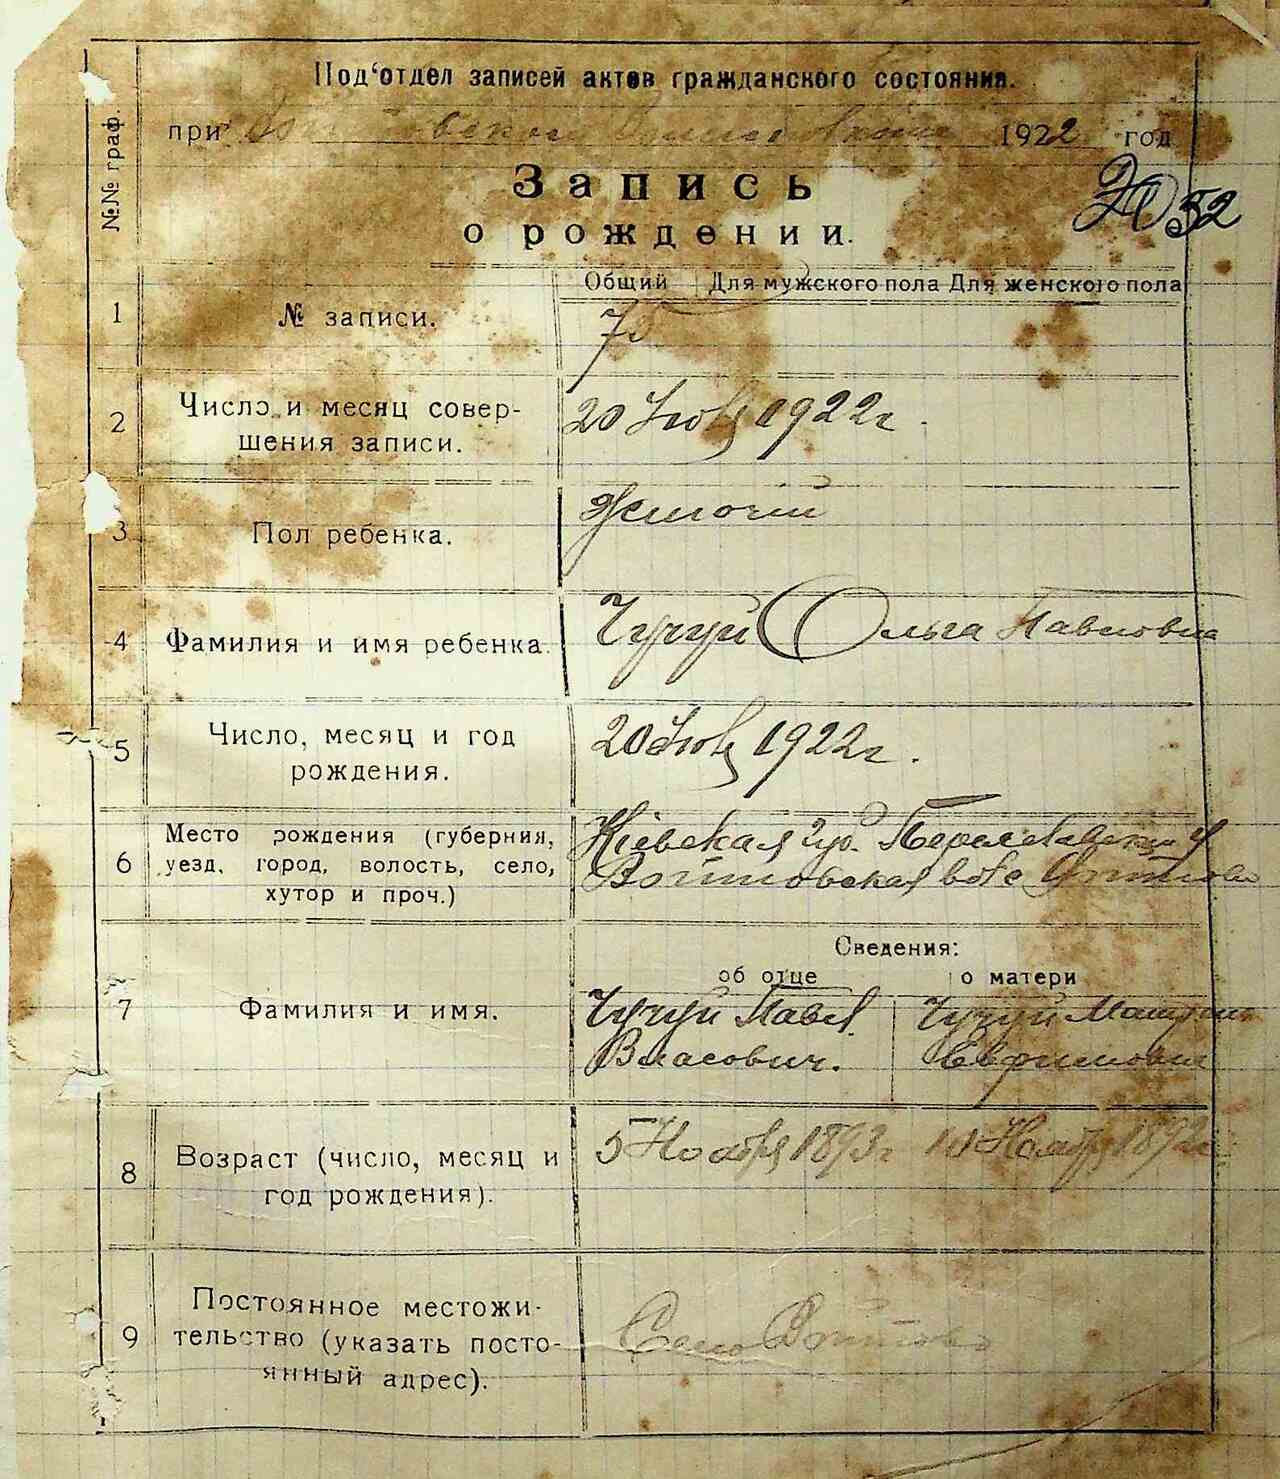 Под‘отдел записей актов гражданского состояния.
при 1922 год
№№ граф.
Запись
о рождении.
52
Общий Для мужского пола Для женского пола
1 № записи.
2 Число и месяц совер-
шения записи.
20 1922 г.
3 Пол ребенка.
4 Фамилия и имя ребенка.
Чугуй Ольга Павловна
5 Число, месяц и год
рождения.
20 1922 г.
6 Место рождения (губерния,
уезд, город, волость, село,
хутор и проч.)
Кіевская губ.
Войтовская
Сведения:
об отце о матери
7 Фамилия и имя.
Чугуй Павел Чугуй
Власович. Ефимовна
8 Возраст (число, месяц и
год рождения).
5 Ноября 1893 г 10 Ноября 1892 г
9 Постоянное местожи-
тельство (указать посто-
янный адрес).
Село Войтово